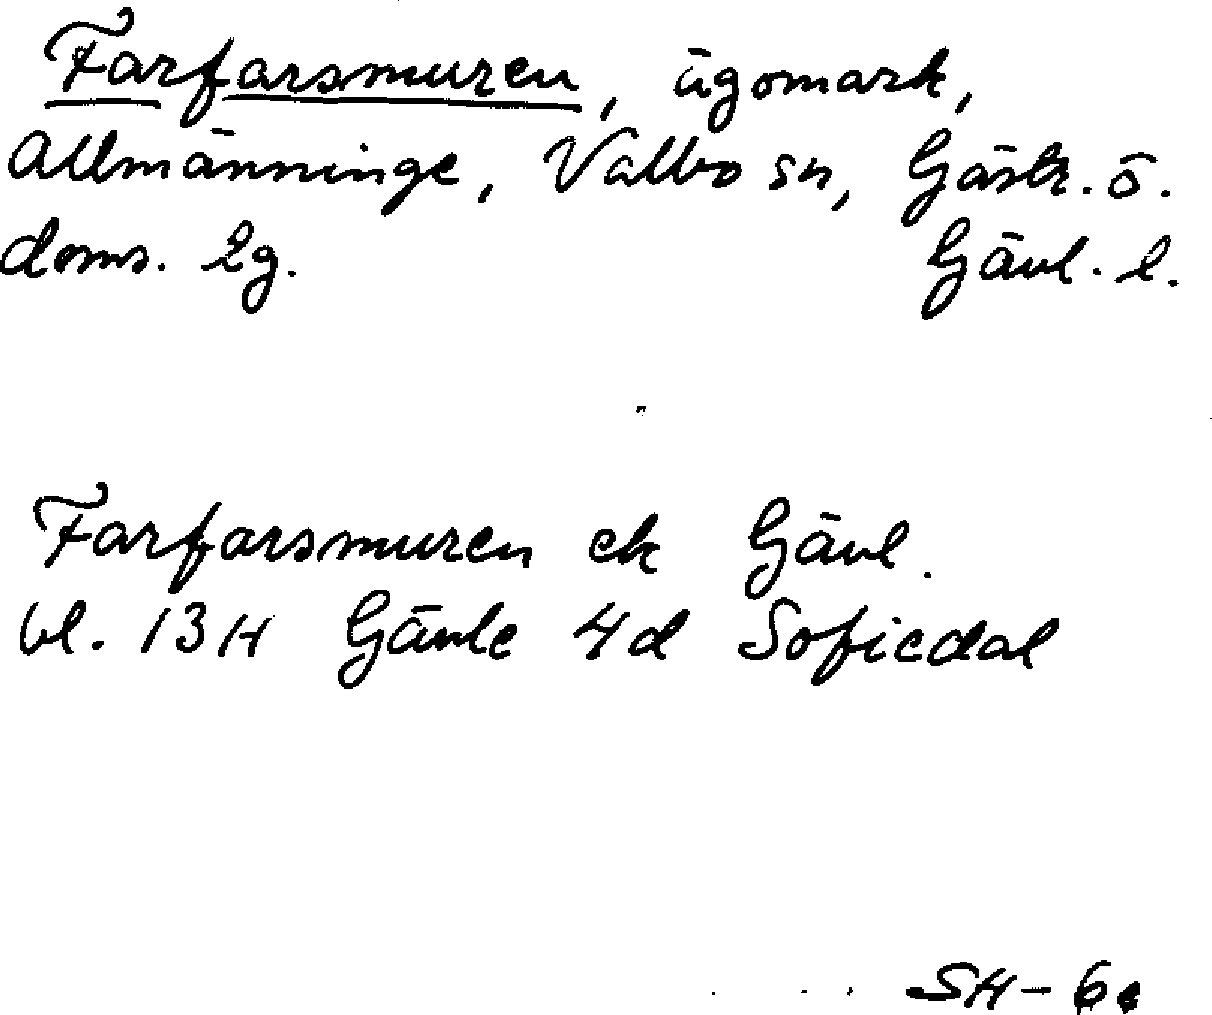 Farfarsmuren, ägomark,
Allmänninge, Valbo sn, Gästr. ö.
doms. lg. Gävl. l.
Farfarsmuren ek Gävl.
bl. 13H Gävle 4d Sofiedal
SH-6